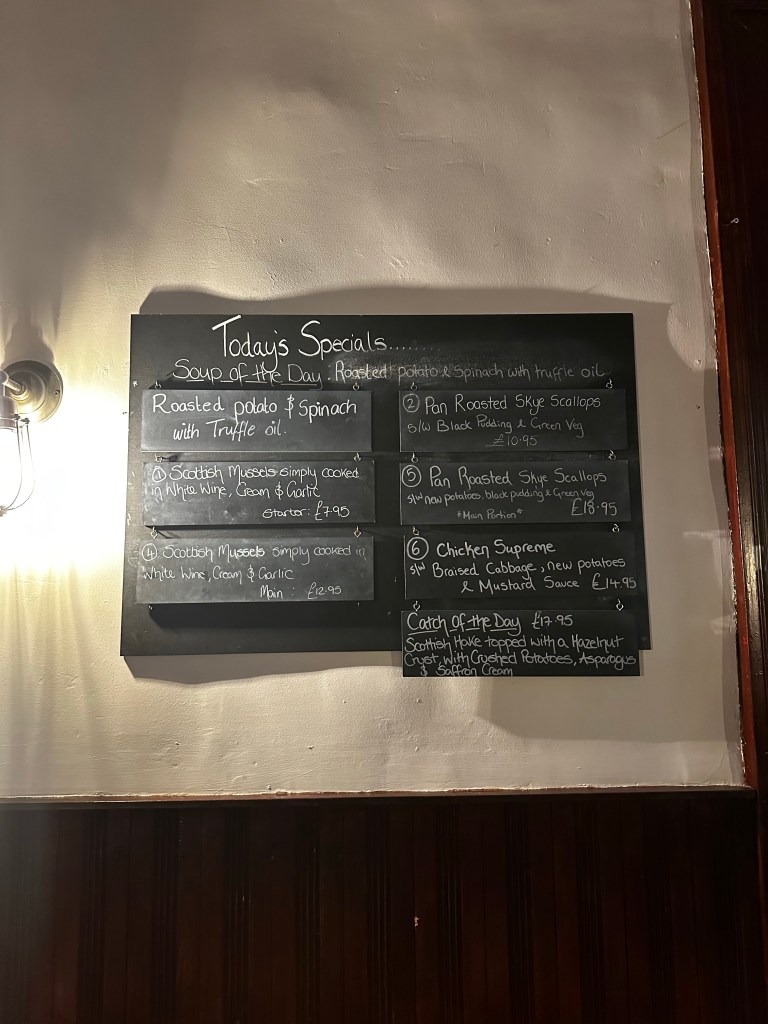 Today's Specials........
Soup of the Day. Roasted potato & Spinach with truffle oil
Roasted potato & Spinach
with Truffle oil.
① Scottish Mussels simply cooked
in White Wine, Cream & Garlic
Starter: £7.95
④ Scottish Mussels simply cooked in
White Wine, Cream & Garlic
Main : £12.95
② Pan Roasted Skye Scallops
s/w Black Pudding & Green Veg
£10.95
⑤ Pan Roasted Skye Scallops
s/w new potatoes, black pudding & Green Veg
*Main Portion* £18.95
⑥ Chicken Supreme
s/w Braised Cabbage, new potatoes
& Mustard Sauce £14.95
Catch of the Day £17.95
Scottish Hake topped with a Hazelnut
Crust, with Crushed Potatoes, Asparagus
& Saffron Cream